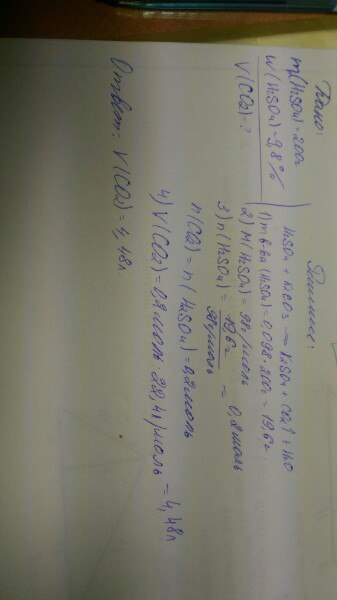 Дано:
m(H₂SO₄)=200г
w(H₂SO₄)=9,8%
V(CO₂)-?
Решение:
H₂SO₄ + K₂CO₃ → K₂SO₄ + CO₂↑ + H₂O
1) m в-ва (H₂SO₄)=0,098·200г=19,6г
2) M(H₂SO₄)=98г/моль
3) n(H₂SO₄)= 19,6г / 98г/моль = 0,2моль
n(CO₂)=n(H₂SO₄)=0,2моль
4) V(CO₂)=0,2моль·22,4л/моль=4,48л
Ответ: V(CO₂)=4,48л.